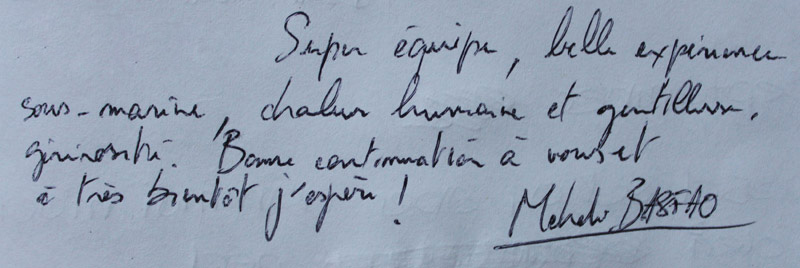 Super équipe, belle expérience
sous-marine, chaleur humaine et gentillesse,
générosité. Bonne continuation à vous et
à très bientôt j'espère !